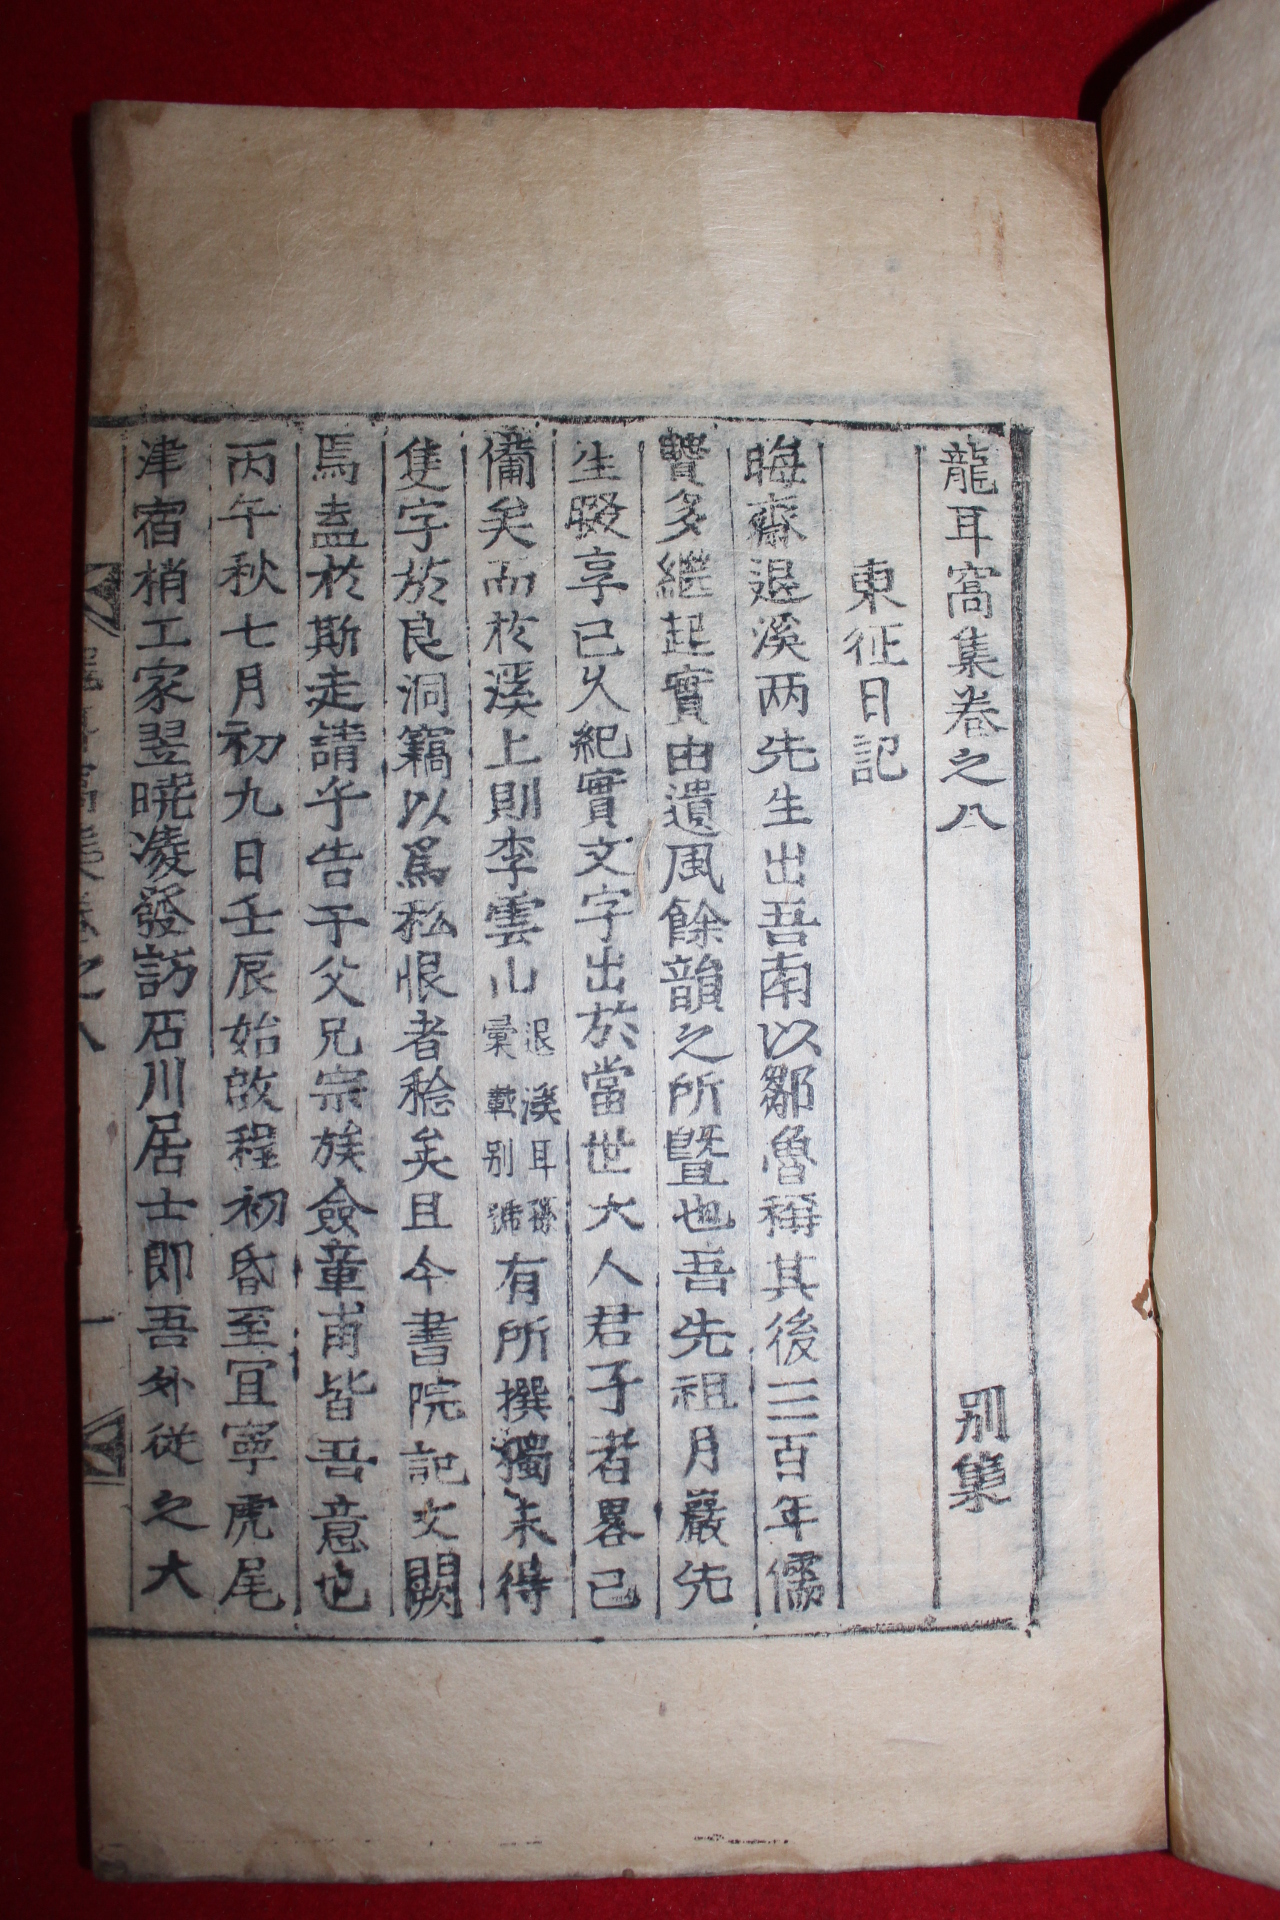 龍耳窩集卷之八　別集
東征日記
晦齋退溪两先生出吾南以鄒魯稱其後三百年儒
賢多繼起實由遺風餘韻之所曁也吾先祖月巖先
生腏享已久紀實文字出於當世大人君子者畧已
備矣而於溪上則李雲山退溪耳孫彙載别號有所撰獨未得
隻字於良洞竊以爲私恨者稔矣且今書院記文闕
焉盍於斯走請乎告于父兄宗族僉章甫皆吾意也
丙午秋七月初九日壬辰始啟程初昏至宜寧虎尾
津宿梢工家翌曉凌發訪石川居士即吾外從之大
龍耳窩集卷之八　一